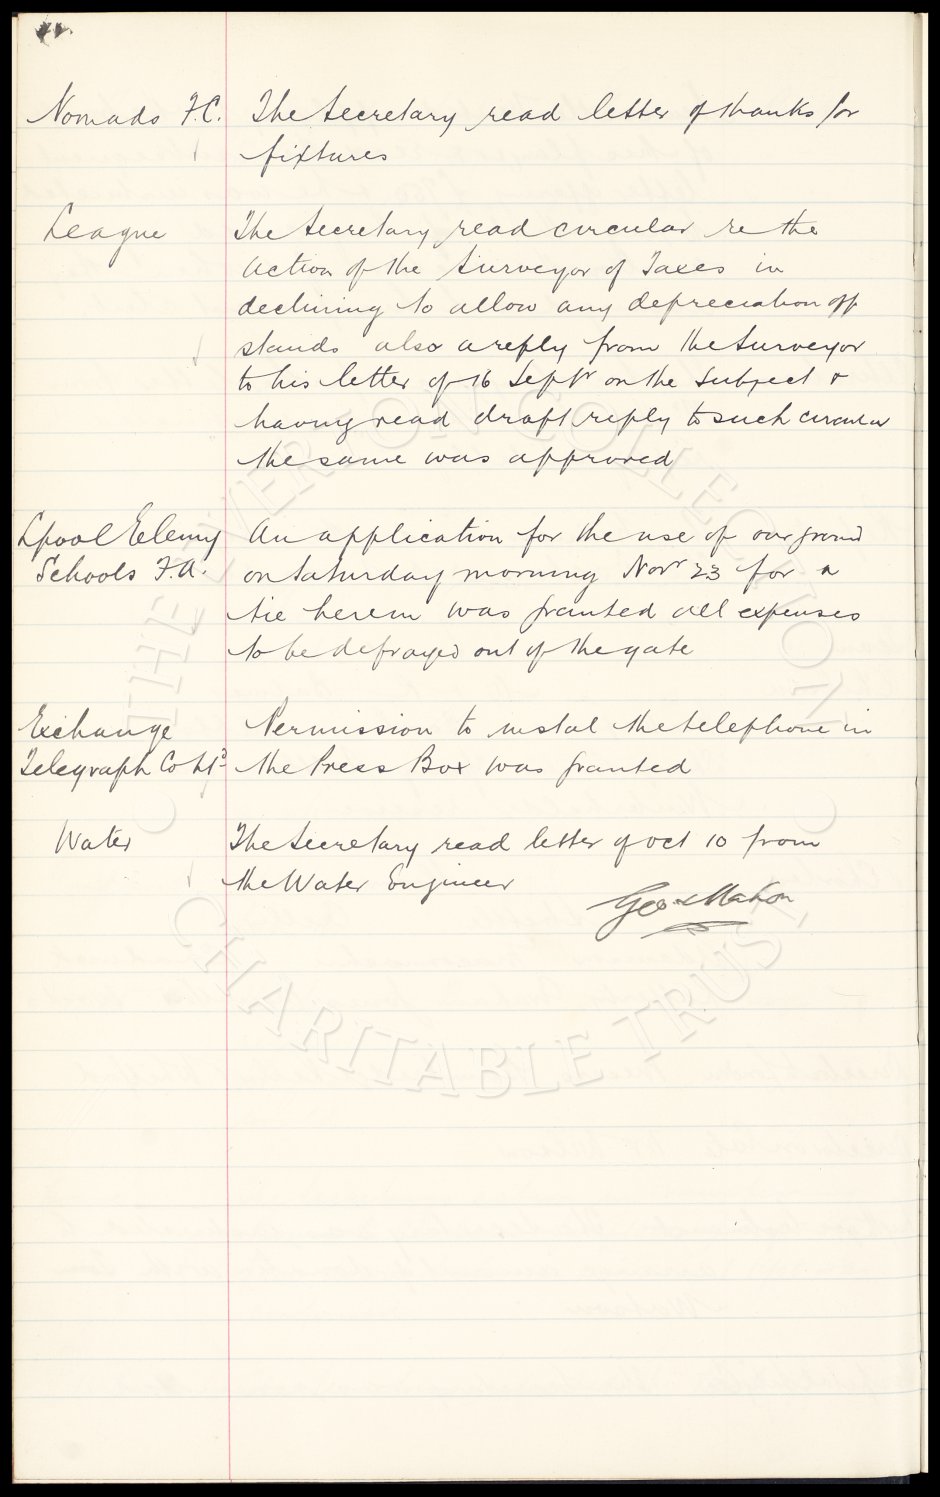 Nomads F.C. The Secretary read letter of thanks for
fixtures
League The Secretary read circular re the
action of the Surveyor of Taxes in
declining to allow any depreciation off
stands also a reply from the Surveyor
to his letter of 16 Septr on the subject &
having read draft reply to such circular
the same was approved
Lpool Elemy An application for the use of our ground
Schools F.A. on Saturday morning Novr 23 for a
tie herein was granted all expenses
to be defrayed out of the gate
Exchange Permission to instal the telephone in
Telegraph Co Ltd the Press Box was granted
Water The Secretary read letter of Oct 10 from
the Water Engineer
Geo Mahon
© THE EVERTON COLLECTION
CHARITABLE TRUST